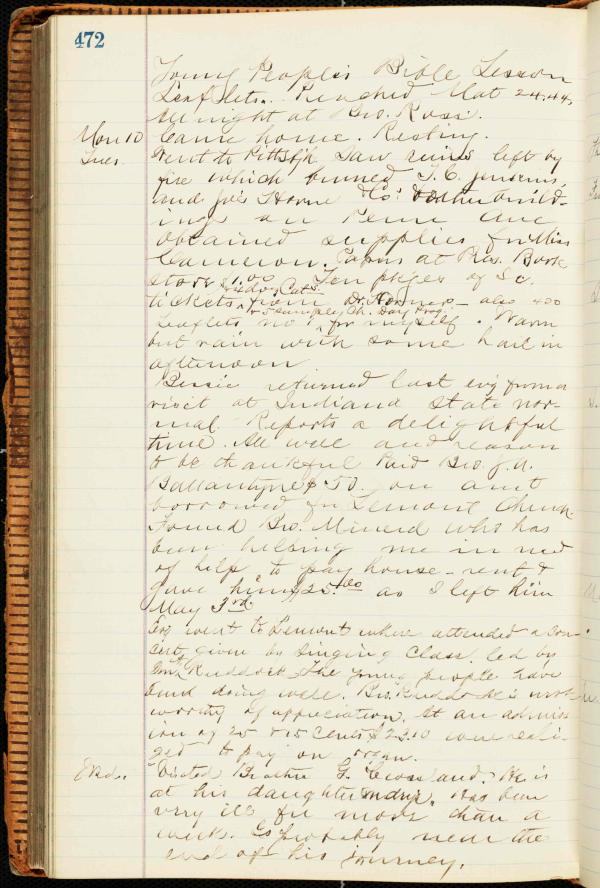 472
Young People's Bible Lesson
Leaflets. Preached Mat 24:44.
All night at Bro. Ross.
Mon 10 Came home. Resting.
Tues. Went to Pittsb'gh Saw ruins left by
fire which burned T. C. Jenkins,
and Jos Horne & Co's build-
ings on Penn Ave
obtained supplies for Miss
Cameron. at Pres. Book
store 1.00 Ten pkges of S.c.
tickets, from Dr. - also 400
& 5 samples Ch. Day Prog.
Leaflets no 1, for myself. Warm
but rain with some hail in
afternoon
Bessie returned last ev'g from a
visit at Indiana State Nor-
mal. Reports a delightful
time. All well and reason
to be thankful Paid Bro. J. A.
Ballantyne $50. on amt
borrowed for Lemont Church.
Found Bro. Minerd who has
been helping me in need
of help to pay house-rent &
gave him $25.00 as I left him
May 3rd.
Eve went to Lemont where attended a con-
cert given by singing class, led by
Ruddock. The young people have
been doing well. Bro. Ruddock's work
worthy of appreciation. At an admiss-
ion of 25 & 15 cents $23.10 were reali-
zed to pay on organ.
Wed. Visited Brother G. He is
at his daughter Has been
very ill for more than a
week. Is probably near the
end of his journey.